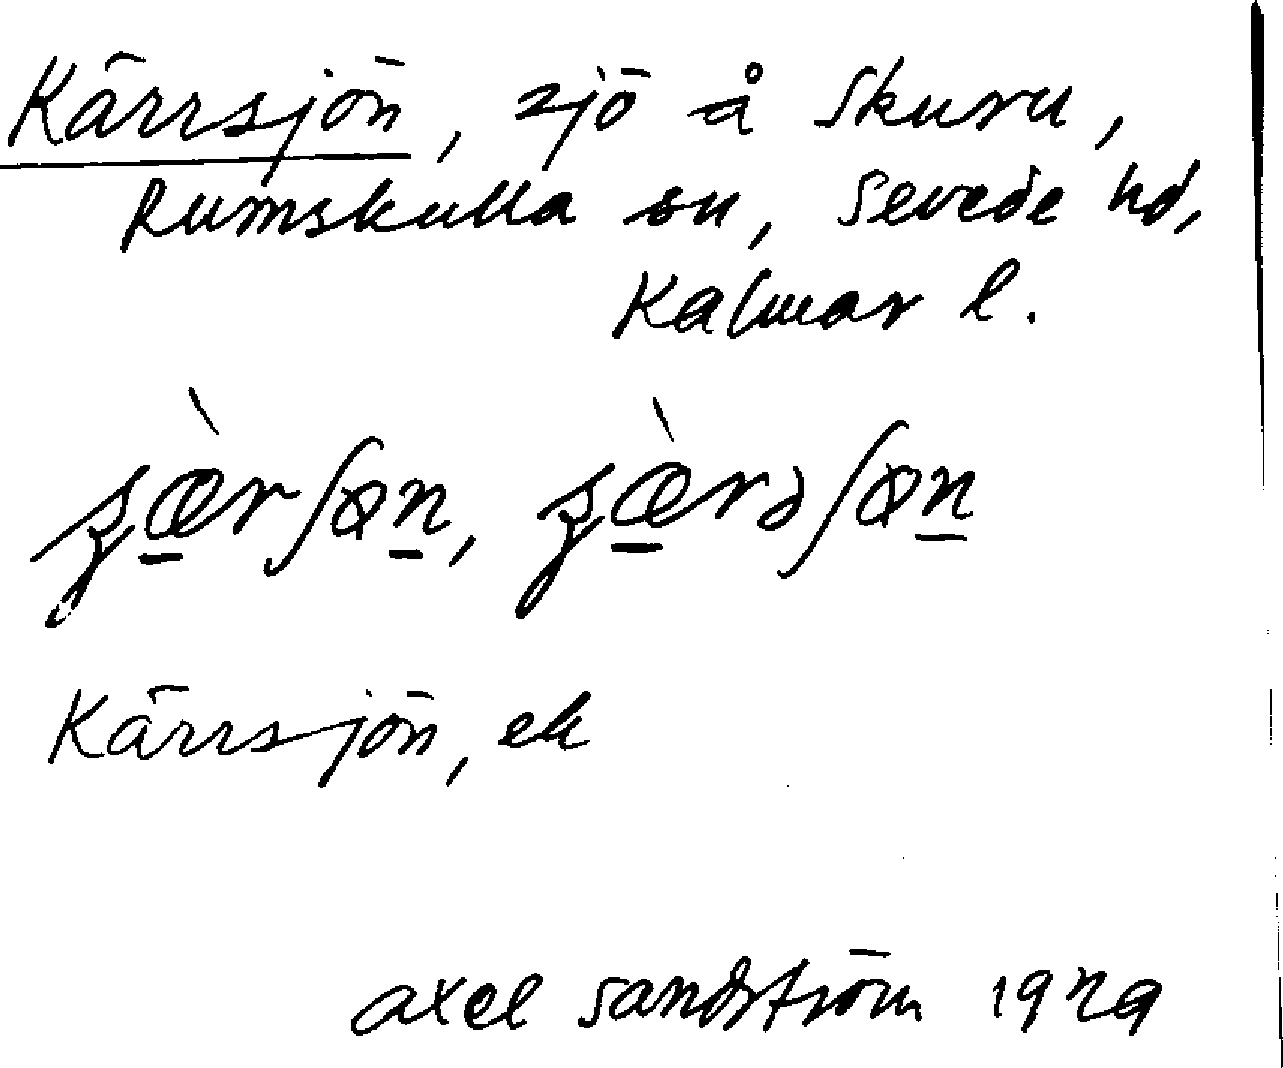 Kärrsjön, sjö å Skuru,
Rumskulla sn, Sevede hd,
Kalmar l.
Kärrsjön, ek
Axel Sandström 1929